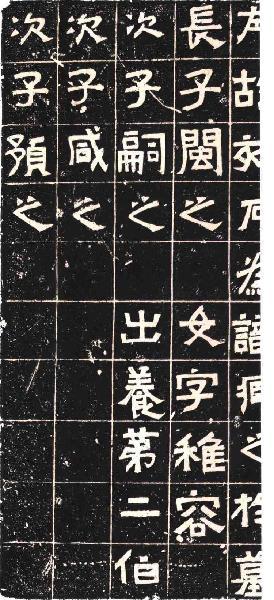 左故刻石為識臧之於墓
長子閩之 女字稚容
次子嗣之 出養第二伯
次子咸之
次子預之